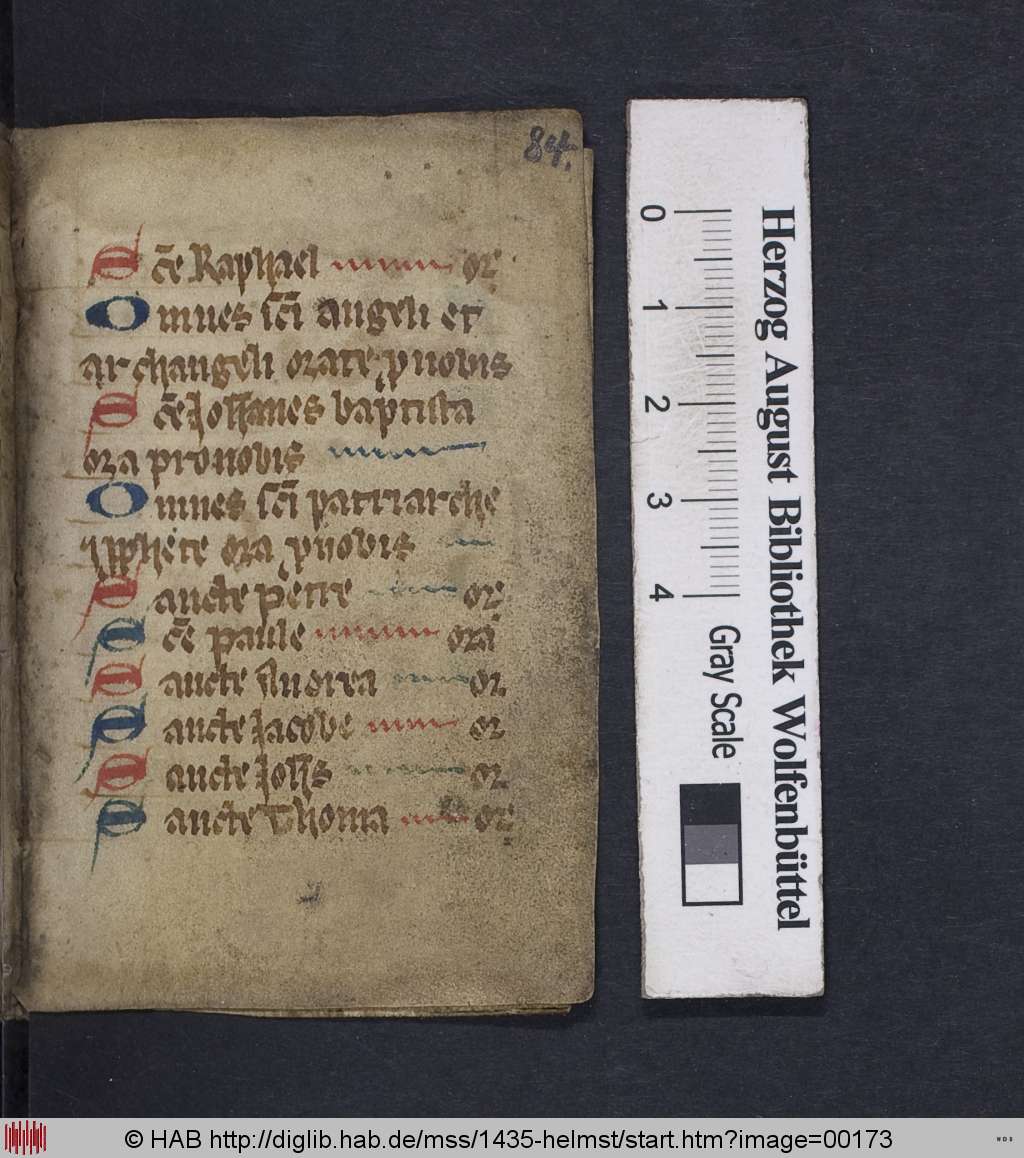 84.
Sc̄e Raphael or
Omnes sc̄i angeli et
archangeli orate p nobis
Sc̄e Johanes baptista
ora pro nobis
Omnes sc̄i patriarche
ora p nobis
Sancte petre or
Sc̄e paule ora
Sancte Andrea or
Sancte Jacobe or
Sancte Johs or
Sancte Thoma or
Herzog August Bibliothek Wolfenbüttel
0 1 2 3 4 Gray Scale
© HAB http://diglib.hab.de/mss/1435-helmst/start.htm?image=00173